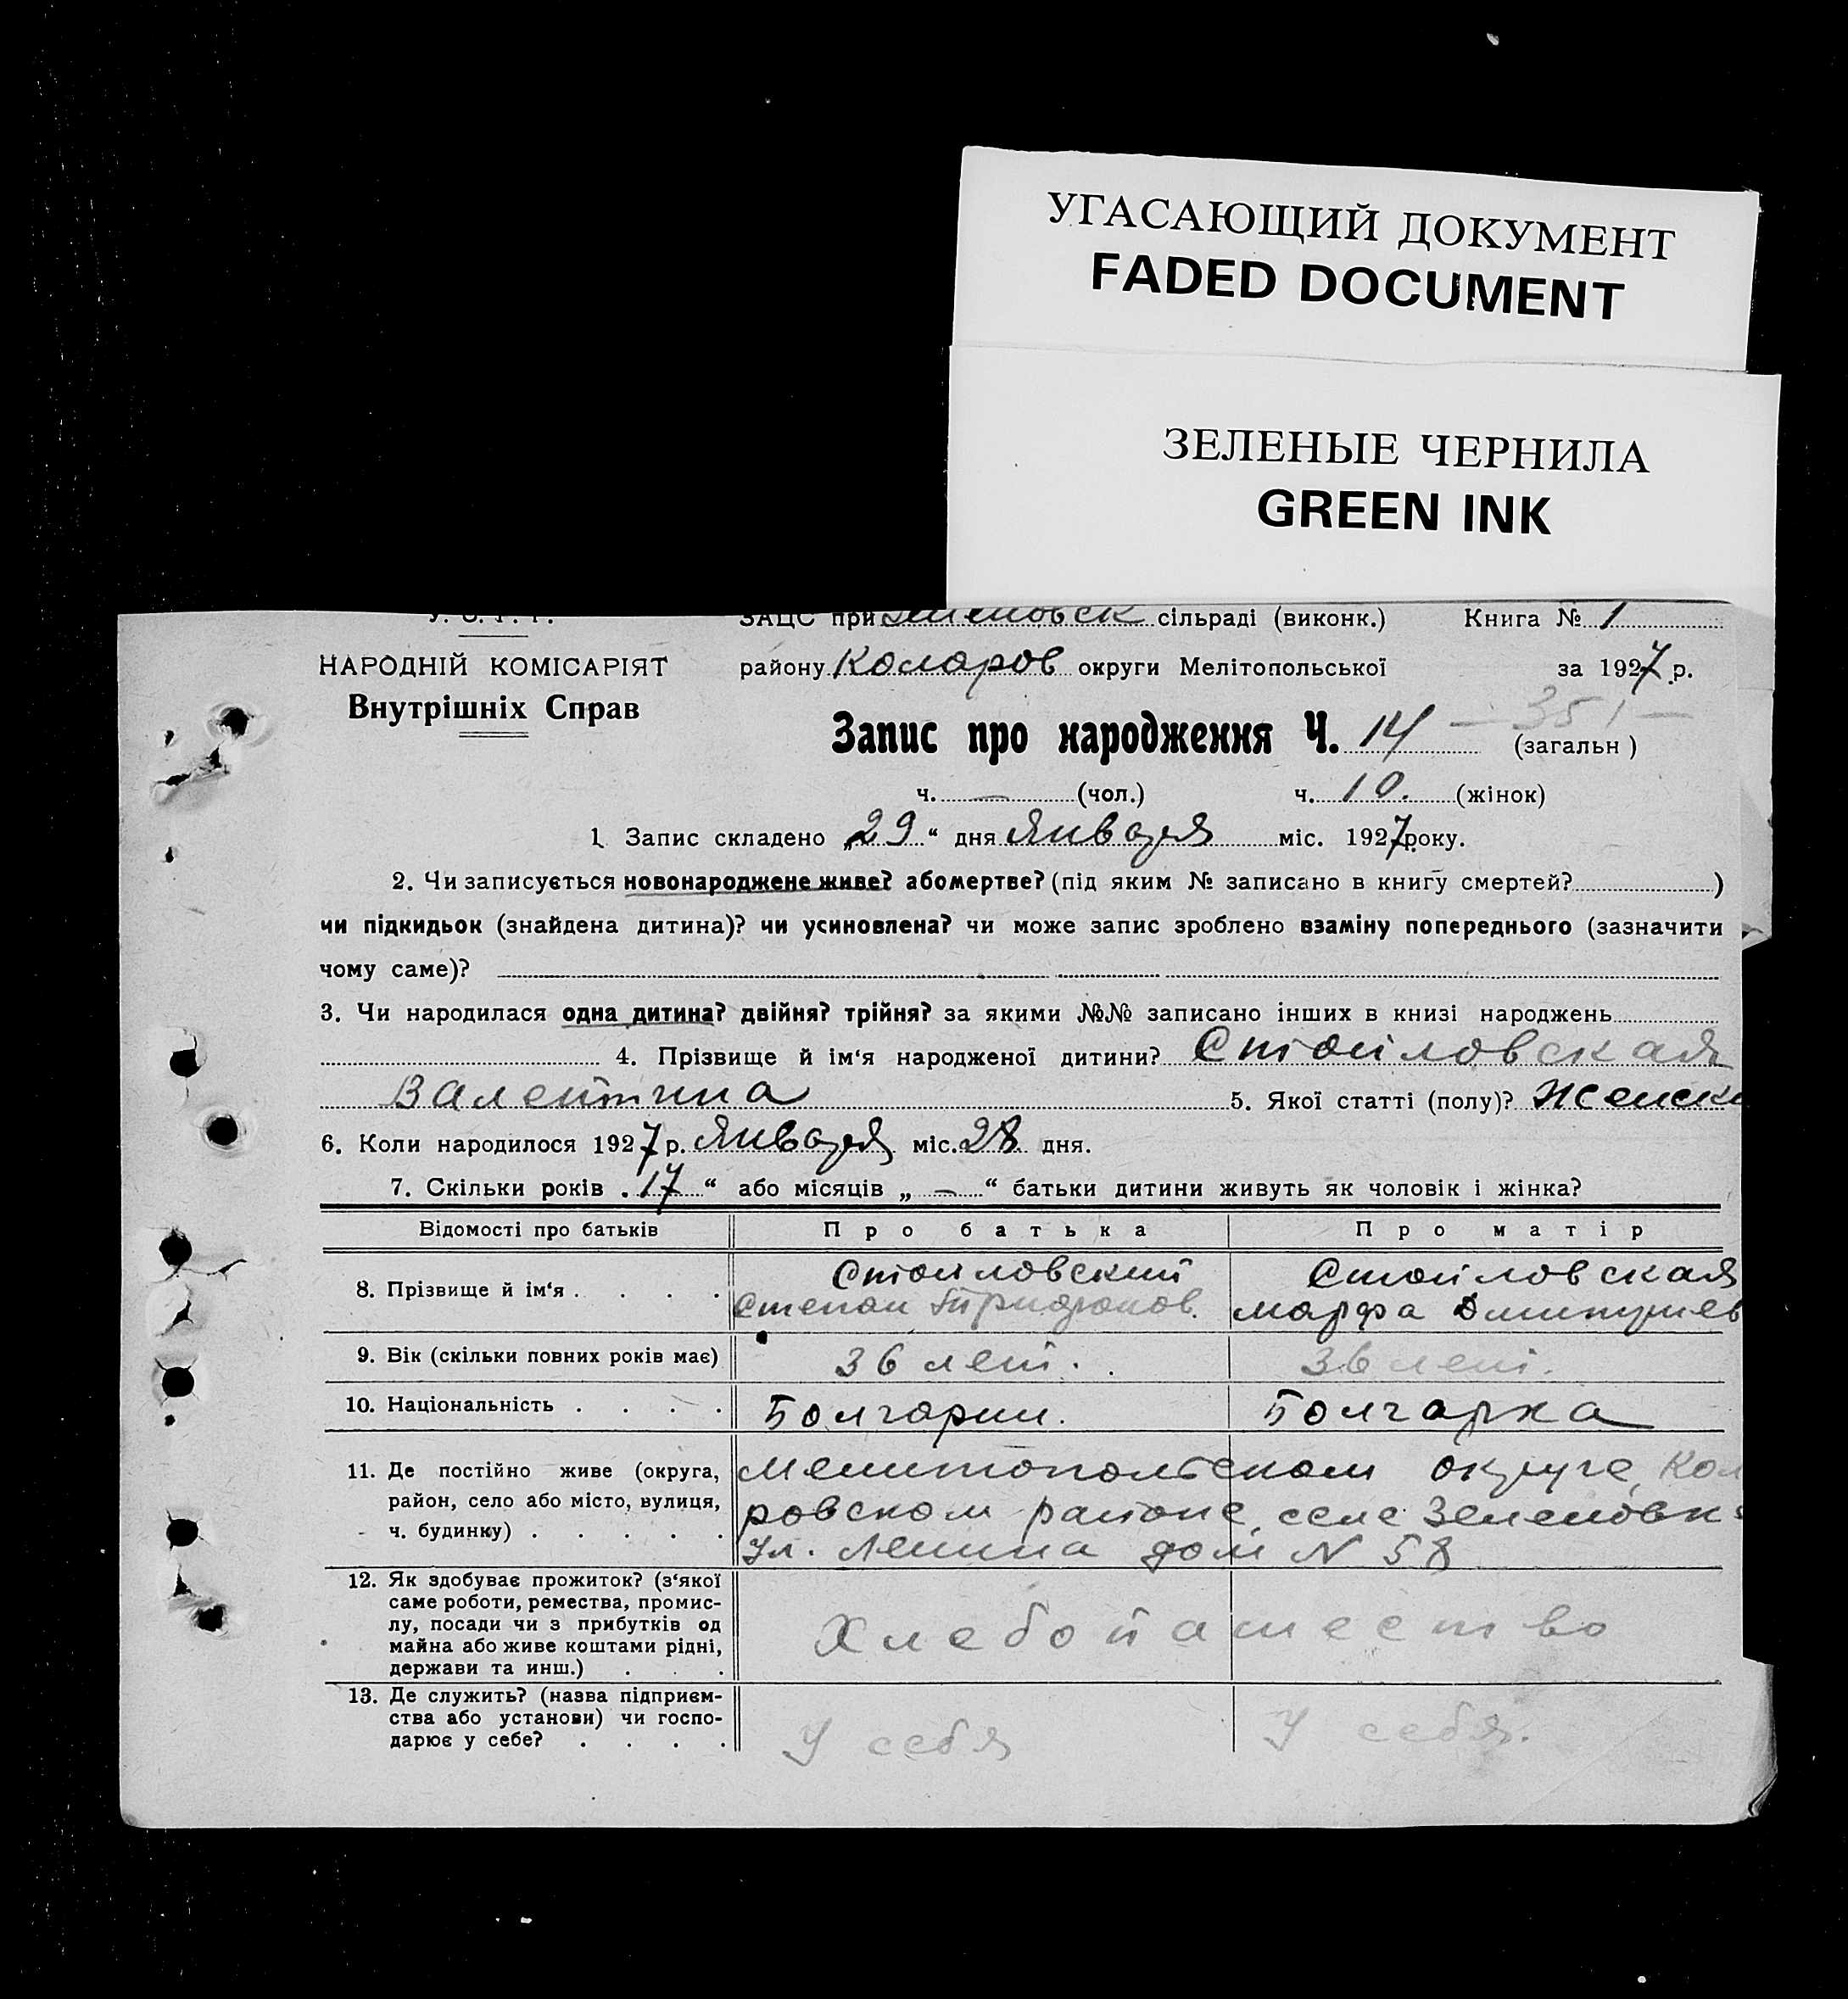 УГАСАЮЩИЙ ДОКУМЕНТ
FADED DOCUMENT
ЗЕЛЕНЫЕ ЧЕРНИЛА
GREEN INK
У. С. Р. Р. ЗАЦС при Зеленовск сільраді (виконк.) Книга № 1
НАРОДНІЙ КОМІСАРІЯТ району Коларов округи Мелітопольської за 1927 р.
Внутрішніх Справ
Запис про народження Ч. 14 — 351 — (загальн)
ч. — (чол.) ч. 10. (жінок)
1. Запис складено „29“ дня Января міс. 1927 року.
2. Чи записується новонароджене живе? або мертве? (під яким № записано в книгу смертей? )
чи підкидьок (знайдена дитина)? чи усиновлена? чи може запис зроблено взаміну попереднього (зазначити
чому саме)?
3. Чи народилася одна дитина? двійня? трійня? за якими №№ записано інших в книзі народжень
4. Прізвище й ім‘я народженої дитини? Стойловская
Валентина 5. Якої статті (полу)? Женск
6. Коли народилося 1927 р. Января міс. 28 дня.
7. Скільки років „17“ або місяців „—“ батьки дитини живуть як чоловік і жінка?
Відомості про батьків Про батька Про матір
8. Прізвище й ім‘я Стойловский Стойловская
Степан Марфа
9. Вік (скільки повних років має) 36 лет. 36 лет.
10. Національність Болгарин. Болгарка
11. Де постійно живе (округа, Мелитопольском округе, Кол
район, село або місто, вулиця, ровском районе, селе Зеленовк
ч. будинку) Ул. Ленина дом N 58
12. Як здобуває прожиток? (з‘якої
саме роботи, ремества, промис-
лу, посади чи з прибутків од Хлебопашество
майна або живе коштами рідні,
держави та инш.)
13. Де служить? (назва підприєм-
ства або установи) чи госпо- У себя У себя.
дарює у себе?